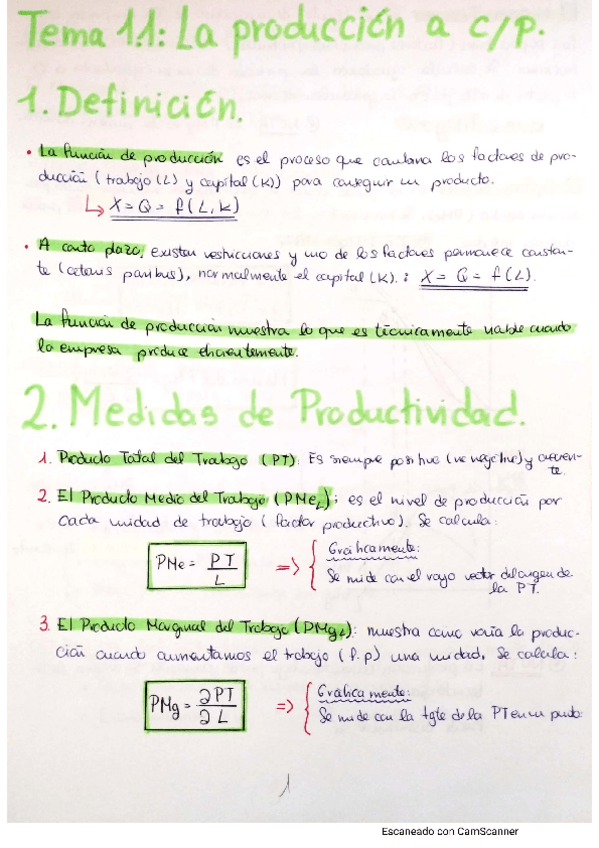 Tema 1.1: La producción a c/p.
1. Definición.
• La función de producción es el proceso que combina los factores de pro-
ducción (trabajo (L) y capital (K)) para conseguir un producto.
↳ X = Q = f(L,K)
• A corto plazo, existen restricciones y uno de los factores permanece constan-
te (ceteris paribus), normalmente el capital (K).: X = Q = f(L).
La función de producción muestra lo que es técnicamente viable cuando
la empresa produce eficientemente.
2. Medidas de Productividad.
1. Producto Total del Trabajo (PT): Es siempre positivo (no negativo) y crecien-
te.
2. El Producto Medio del Trabajo (PMeL): es el nivel de producción por
cada unidad de trabajo (factor productivo). Se calcula:
PMe = PT / L => { Gráficamente:
Se mide con el rayo vector del origen de
la PT.
3. El Producto Marginal del Trabajo (PMgL): muestra como varía la produc-
ción cuando aumentamos el trabajo (f.p) una unidad, Se calcula:
PMg = ∂PT / ∂L => { Gráficamente:
Se mide con la tgte de la PT en un punto.
1
Escaneado con CamScanner